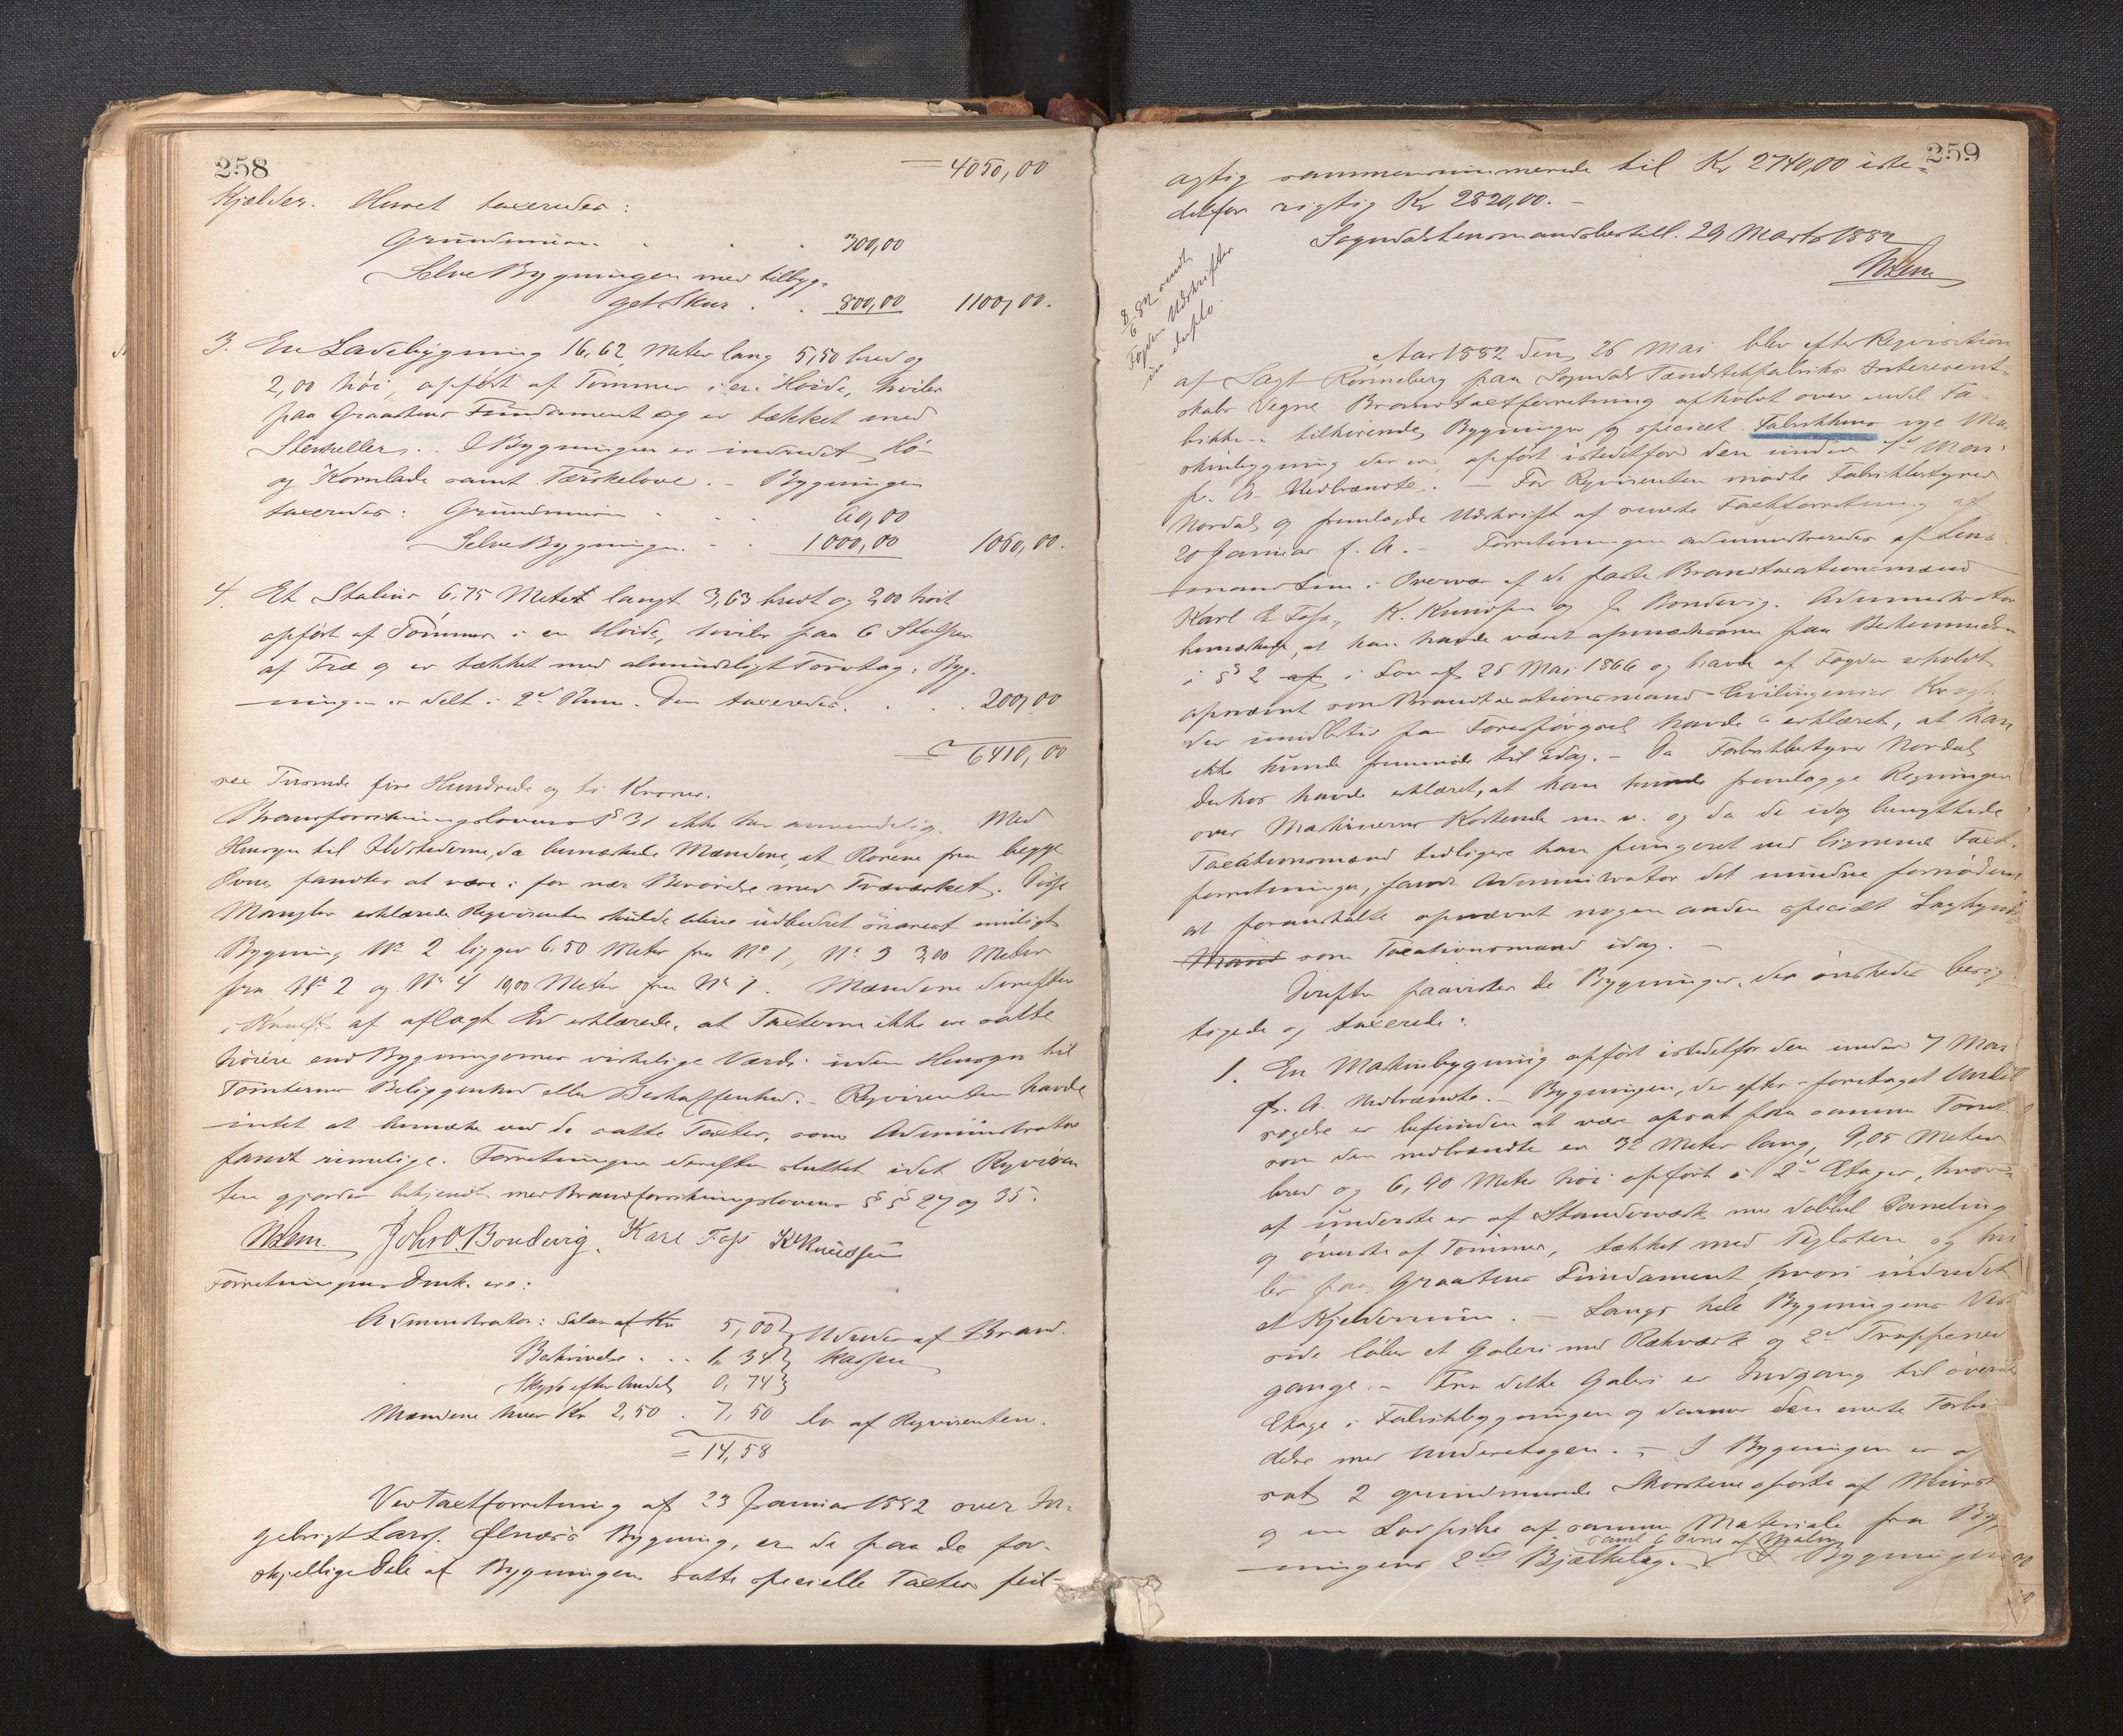 258
= 4050,00
Kjælder. Huset taxeredes:
Grundmuren . . . 300,00
Selve Bygningen med tilbyg-
get Skur . . 800,00 1100,00.
3. En Ladebygning 16,62 Meter lang 5,50 bred og
2,00 høi, opført af Tømmer i en Høide, hviler
paa Graastens Fundament og er tækket med
Stenheller. I Bygningen er indredet Hø-
og Kornlade samt Tærskelove. - Bygningen
taxeredes: Grundmuren . . . 60,00
Selve Bygningen . . 1000,00 1060,00.
4. Et Stalhus 6,75 Meter langt 3,63 bredt og 2,00 høit
opført af Tømmer i en Høide, hviler paa 6 Stolper
af Træ og er tækket med almindeligt Torvtag. Byg-
ningen er delt i 2de Rum. Den taxeredes . . . 200,00
= 6410,00
sex Tusinde fire Hundrede og ti Kroner.
Brandforsikringslovens § 31 ikke her anvendelig. Med
Hensyn til Ildstederne, da bemærkede Mændene, at Rørene fra begge
Ovne fandtes at være i for nær Berørelse med Træværket. Disse
Mangler erklærede Rqvirenten skulde blive udbedret snarest muligt
Bygning No 2 ligger 6,50 Meter fra No 1, No 3 3,00 Meter
fra No 2 og No 4 10,00 Meter fra No 1. Mændene derefter
i Kraft af aflagt Ed erklærede, at Taxterne ikke ere satte
høiere end Bygningernes virkelige Værdi uden Hensyn til
Tomternes Beliggenhed eller Beskaffenhed. - Rqvirenten havde
intet at bemærke ved de satte Taxter, som Administrator
fandt rimelige. Forretningen derefter sluttet idet Rqviren-
ten gjordes bekjendt med Brandforsikringslovens §§ 27 og 35.
NLem. Johs O. Bondevig. Karl Foss K Knudsen
Forretningens Omk. ere:
Administrator: Salær af Kr 5,00 Udredes af Brand-
Beskrivelse . . . 1,34 kassen
Skyds efter Andel 0,74
Mændene hver Kr 2,50 . 7,50 bæ af Rqvirenten.
= 14,58
Ved Taxtforretning af 23 Januar 1882 over In-
gebrigt Larss. Ølnæs's Bygning, er de paa de for-
skjellige Dele af Bygningen satte specielle Taxter feil-
259
agtig sammensummerede til Kr 2740,00 iste-
detfor rigtig Kr 2820,00. -
Sogndals Lensmandsbestill. 29 Marts 1882
NLem
8/6 82 sendt
Fogden Udskrifter
in duplo.
Aar 1882 den 26 Mai blev efter Reqvisition
af Sagf. Rønneberg paa Sogndals Tændstikfabriks Interesent-
skabs Vegne Brandtaxtforretning afholdt over endel Fa-
brikken tilhørende Bygninger og specielt Fabrikkens nye Ma-
skinbygning der er opført istedetfor den under 7de Mars
f. A. Nedbrændte. - For Rqvirenten mødte Fabrikbestyrer
Nordal og fremlagde Udskrift af seneste Taxtforretning af
20 Januar f. A. - Forretningen administreredes af Lens-
mand Lem i Overvær af de faste Brandtaxationsmænd
Karl E. Foss, K. Knudsen og J. Bondevig. Administrator
bemærkede, at han havde været opmærksom paa Bestemmelsen
i § 2 af i Lov af 26 Mai 1866 og havde af Fogden erholdt
opnævnt som Brandtaxationsmand Civilingeniør Krogh
der imidlertid paa Forespørgsel havde erklæret, at han
ikke kunde fremmøde til idag. - Da Fabrikbestyrer Nordal
derhos havde erklæret, at han kunde fremlægge Regninger
over Maskinernes Kostende m. v. og da de idag benyttede
Taxationsmænd tidligere har fungeret ved lignende Taxt-
forretninger, fandt Administrator det mindre fornødent
at foranstalte opnævnt nogen anden speciel Sagkyndig
Mand som Taxationsmand idag. -
Derefter paavistes de Bygninger, der ønskedes besig-
tigede og taxerede:
1. En Maskinbygning opført istedetfor den under 7 Mars
f. A. Nedbrændte. - Bygningen, der efter foretaget Under-
søgelse er befunden at være opsat paa samme Tomt
som den nedbrændte er 32 Meter lang, 9,05 Meter
bred og 6,90 Meter høi opført i 2de Etager, hvor-
af underste er af Standerværk med dobbel Paneling
og øverste af Tømmer, tækket med Teglsten og hvi-
ler paa Graastens Fundament hvori indredet
et Kjelderrum. - Langs hele Bygningens Vest-
side løber et Galeri med Rækværk og 2de Trappened-
gange. - Fra dette Galeri er Indgang til øverste
Etage i Fabrikbygningen og danner den eneste Forbin-
delse med Underetagen. - I Bygningen er op-
sat 2 grundmurede Skorstene opførte af Mursten
og en Luftpibe af samme Materiale fra Byg-
samt 6 Ovne af Malm
ningens 2det Bjelkelag. - I Bygningen